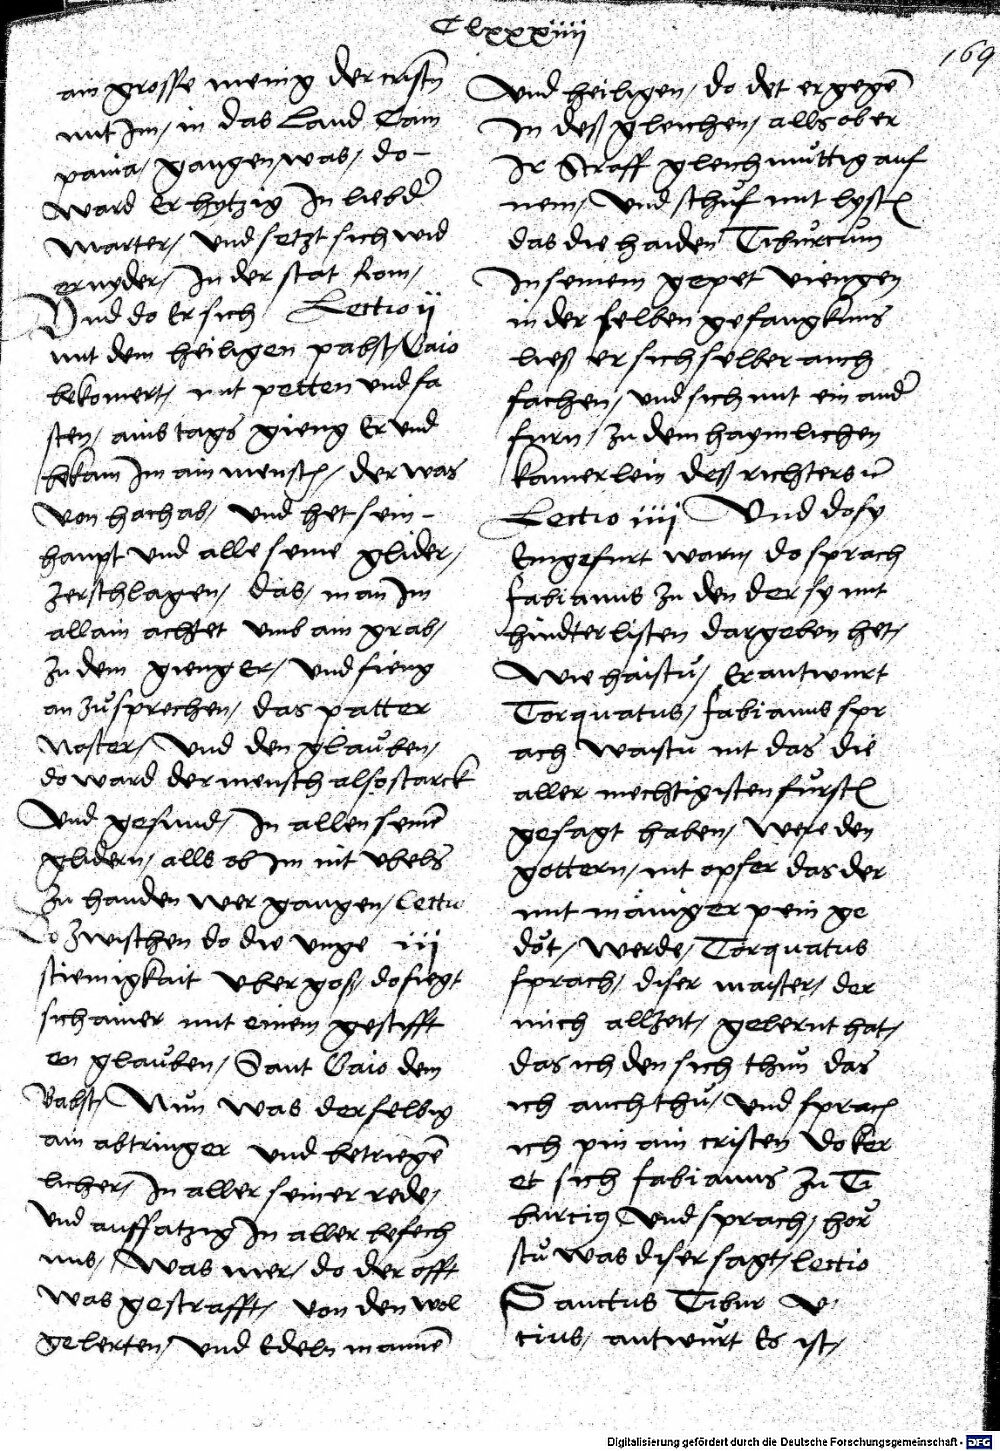 Clxxxiiii
169
ain grosse menig der cristn
mit Im, in das Land Cam
pania, gangen, was, do-
ward Er hytzig In lieb der
Marter, Und setzt sich wid
ernyder, In der stat Rom,
Und do Er sich Lectio ij
mit dem heiligen pabst, Gaio
bekomert, mit petten und fa
sten, ains tags gieng Er und
bekam Im ain mensch, der was
von hach ab, und het sein-
haupt und alle seine glider,
zerschlagen, das, man Im
allain achtet umb ain grab,
Zu dem gieng er, und fieng
an zů sprechen, das patter
Noster, Und den glauben,
do ward der mensch also starck
Und gesund, In allen seinē
glidern, alls ob Im nit ubels
zu handen wer gangen, Lectio
Do zwischen do die unge iij
stiemigkait uber gos, do fiegt
sich aner mit einem gestifft
en glauben, Sant Gaio dem
Babst, Nun was der selbig
ain abtringer und betriegē
licher, In aller seiner rede,
und auffsatzig In aller besech
nus, Was mer, do der offt
was gestrafft, von den wol
gelerten, und Edeln mannē
Und heiligen, do det er gegē
In deß gleichen, alls ob er
Ir Straff gleich muttig auf
nem, Und schuf mit lysten
das die haiden Tiburcium
In seinem gepet viengen
in der selben gefangknus
ließ er sich selber auch
fachen, und sich mit ein ander
furn, zu dem haymlichen
kamerlein deß richters ū
Lectio iiij Und do sy
Eingefurt warn, do sprach
fabianus zu den der sy mit
hindterlisten dargeben het,
Wie haistu, Er antwurt
Torquatus, fabianus spr
ach waistu nit das die
aller mechtigisten fursten
gesagt haben, Were den
gottern, nit opfer das der
mit maniger pein ge
döt, werde, Torquatus
sprach, diser maister, der
mich allzeit, gelernt hat,
das ich den sich thun das
ich auch thu, und sprach
ich pin ain cristen do ker
et sich fabianus zu Ti
burcio Und sprach, hor
stu was diser sagt, Lectio
Sanctus Tibur v
cius, antwurt Es ist,
Digitalisierung gefördert durch die Deutsche Forschungsgemeinschaft - DFG